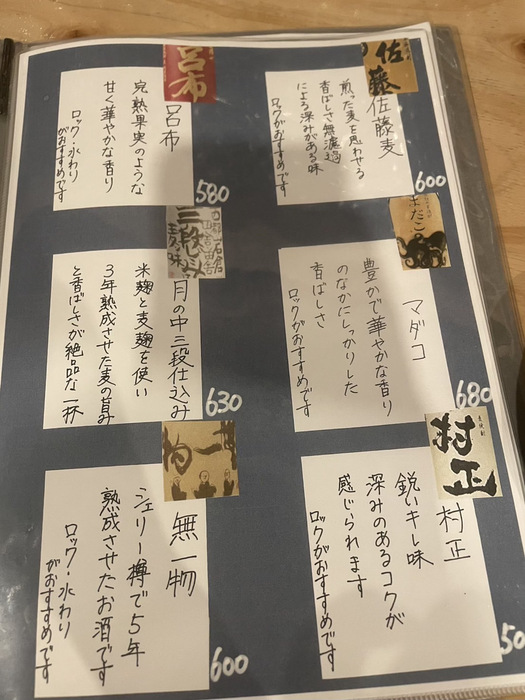 佐藤
佐藤麦
煎った麦を思わせる
香ばしさ無濾過
による深みがある味
ロックがおすすめです
600
呂布
呂布
完熟果実のような
甘く華やかな香り
ロック・水わり
がおすすめです
580
まだこ
マダコ
豊かで華やかな香り
のなかにしっかりした
香ばしさ
ロックがおすすめです
680
三段
月の中三段仕込み
米麹と麦麹を使い
3年熟成させた麦の旨み
と香ばしさが絶品な一杯
630
村正
村正
鋭いキレ味
深みのあるコクが
感じられます
ロックがおすすめです
50
無一物
シェリー樽で5年
熟成させたお酒です
ロック・水わり
がおすすめです
600